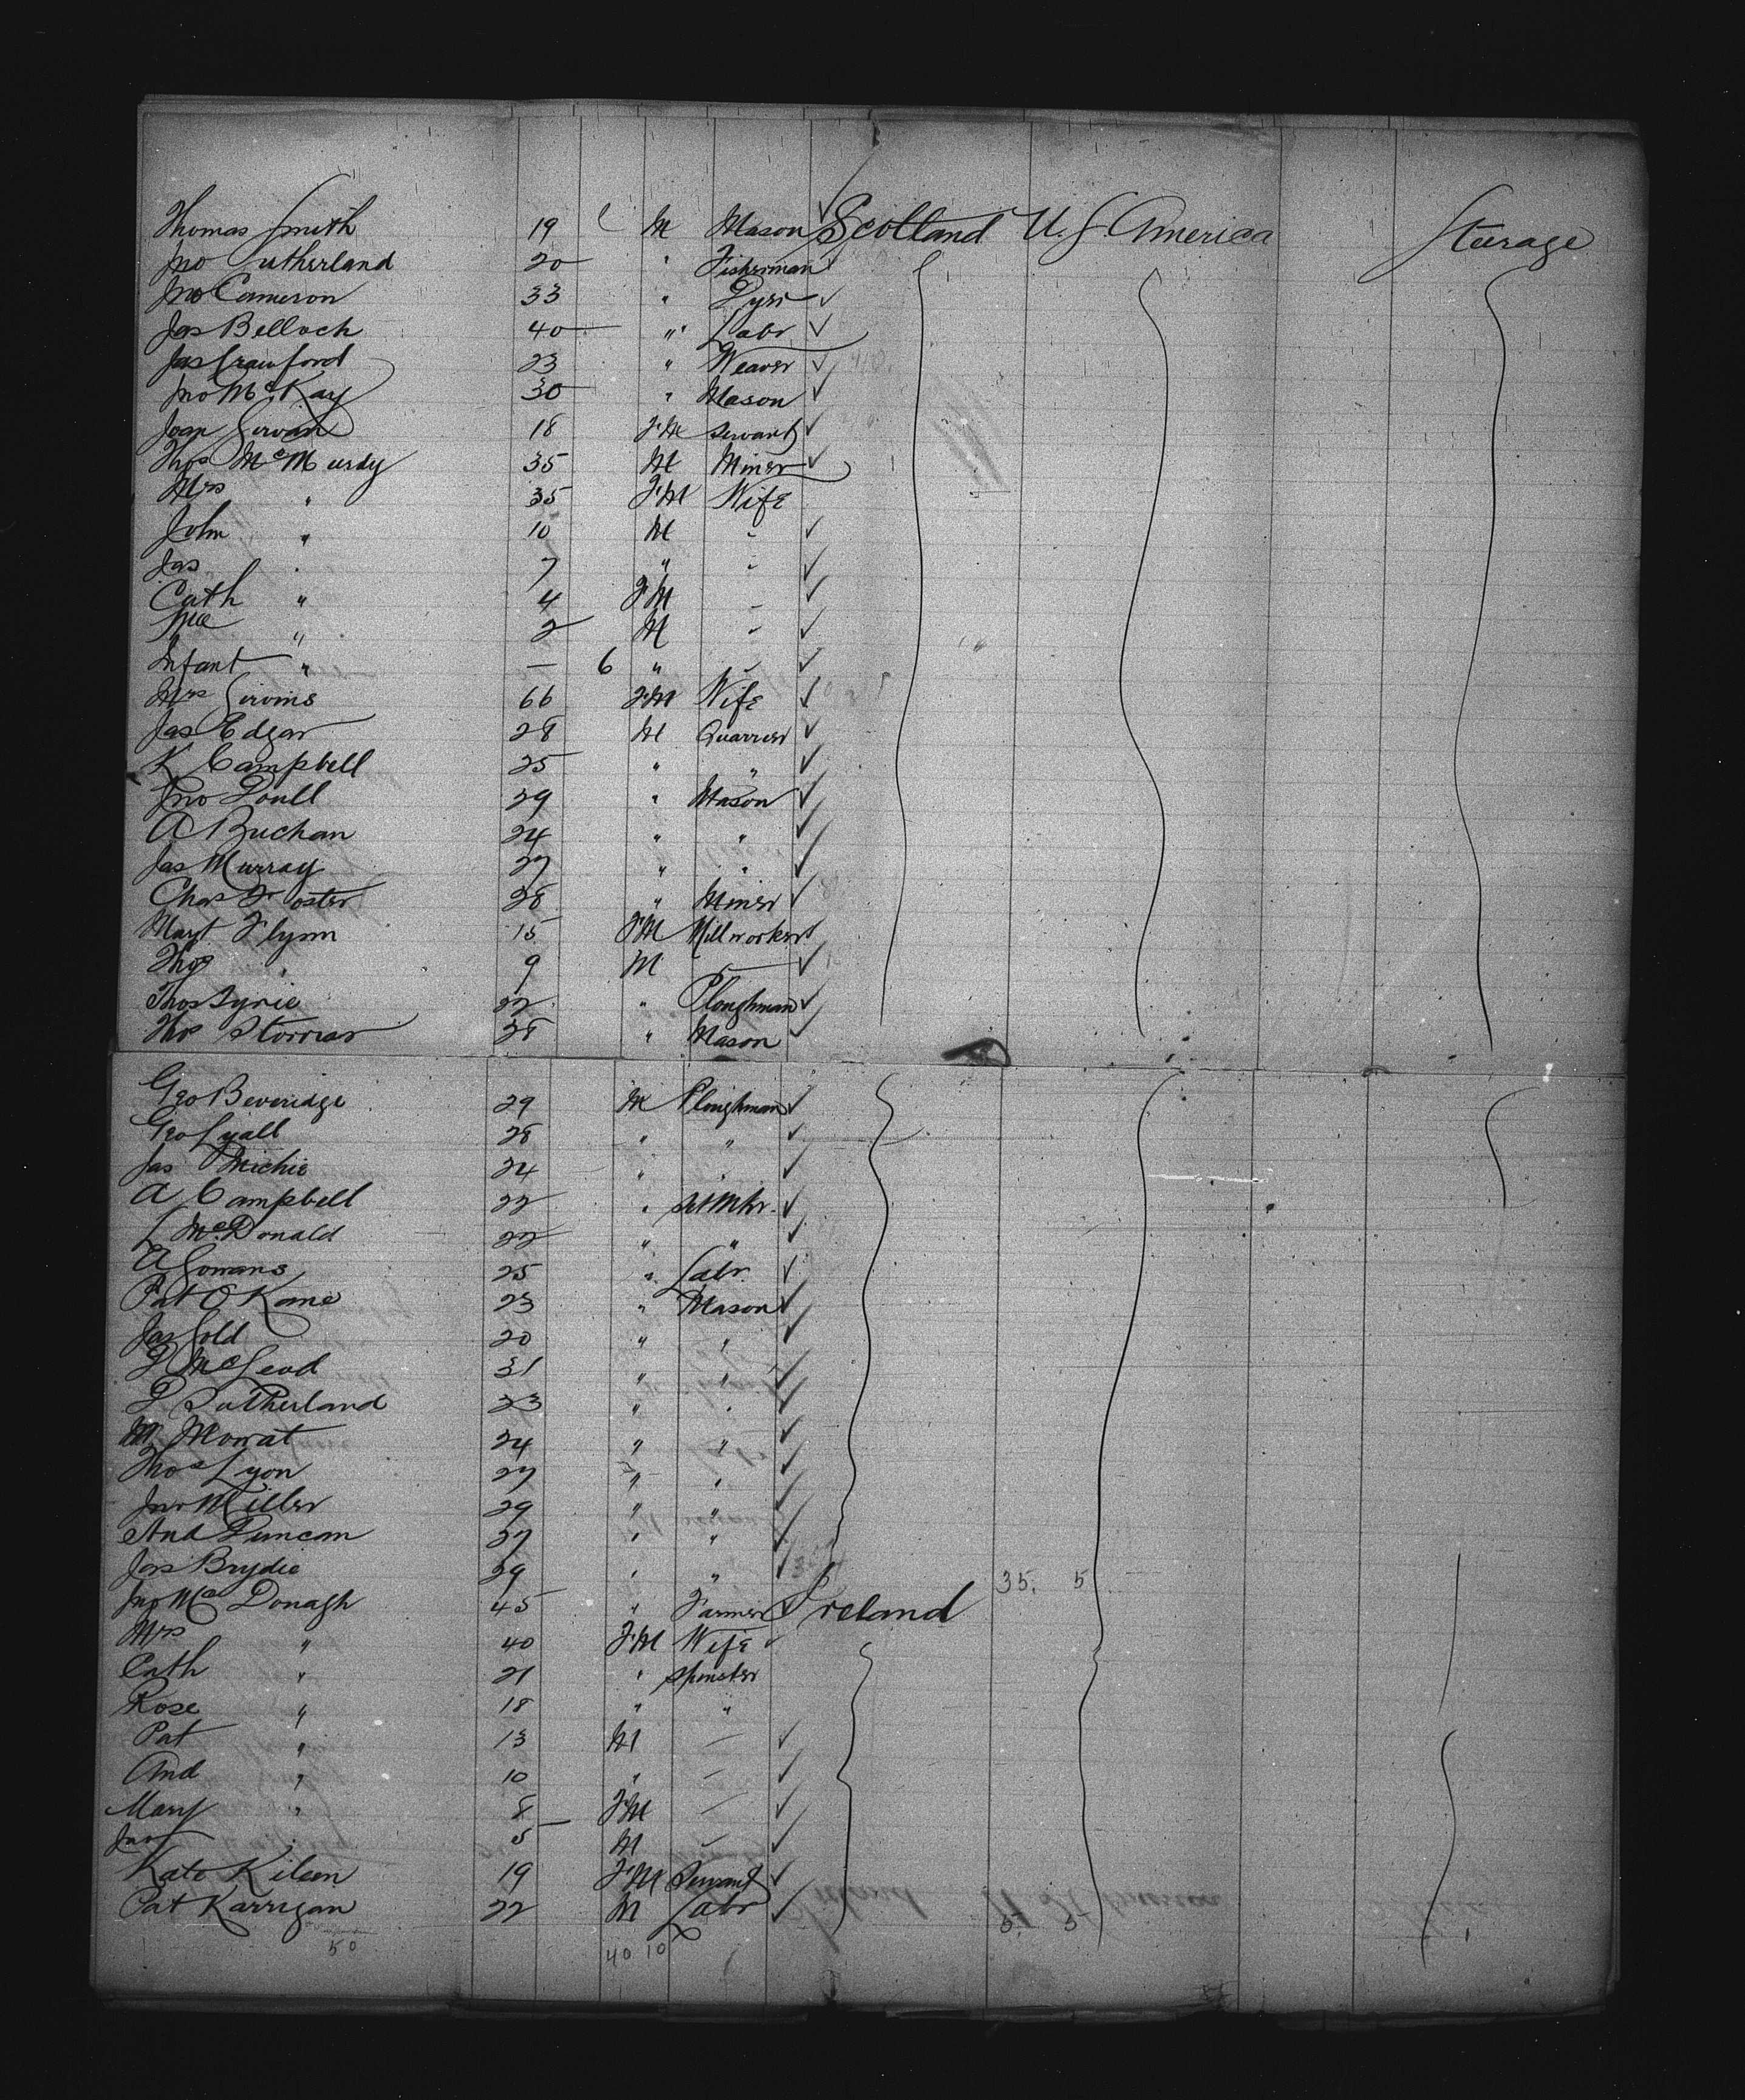 Thomas Smith 19 M Mason Scotland U.S. America Steerage
Jno Sutherland 20 " Fisherman
Jno Cameron 33 " Dyer
Jas Belloch 40 " Labr
Jas Crawford 23 " Weaver
Jno McKay 30 " Mason
Joan Girvan 18 FM Servant
Thos McMurdy 35 M Miner
Mrs " 35 FM Wife
John " 10 M "
Jas " 7 " "
Cath " 4 FM "
" 2 M "
Infant " — 6 " "
Mrs Girvins 66 FM Wife
Jas Edgar 28 M Quarrier
K Campbell 25 " "
Jno Doull 29 " Mason
A Buchan 24 " "
Jas Murray 27 " "
Chas Foster 28 " Miner
Margt Flynn 15 FM Millworker
Thos " 9 M —
Thos Syrie 22 " Ploughman
Thos Storrar 28 " Mason
Geo Beveridge 29 M Ploughman
Geo Lyall 28 " "
Jas Michie 24 " "
A Campbell 22 "
L McDonald 22 " "
A Gowans 25 " Labr
Pat O Kane 23 " Mason
Jas Gold 20 " "
D McLeod 31 " "
D Sutherland 23 " "
M Mowat 24 " "
Thos Lyon 27 " "
Jno Miller 29 " "
And Duncan 27 " "
Jas Brydie 29 " " 35. 5
Jno McDonagh 45 " Farmer Ireland
Mrs " 40 FM Wife
Cath " 21 " Spinster
Rose " 18 " "
Pat " 13 M —
And " 10 " —
Mary " 8 FM —
Jno " 5 M —
Kate Kileen 19 FM Servant
Pat Karrigan 22 M Labr 5. 5
50 40 10